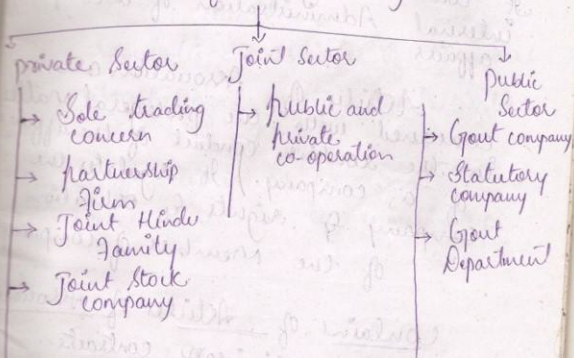 private Sector
Sole trading
concern
partnership
Firm
Joint Hindu
Family
Joint Stock
company
Joint Sector
public and
private
co-operation
Public
Sector
Govt company
Statutory
company
Govt
Department